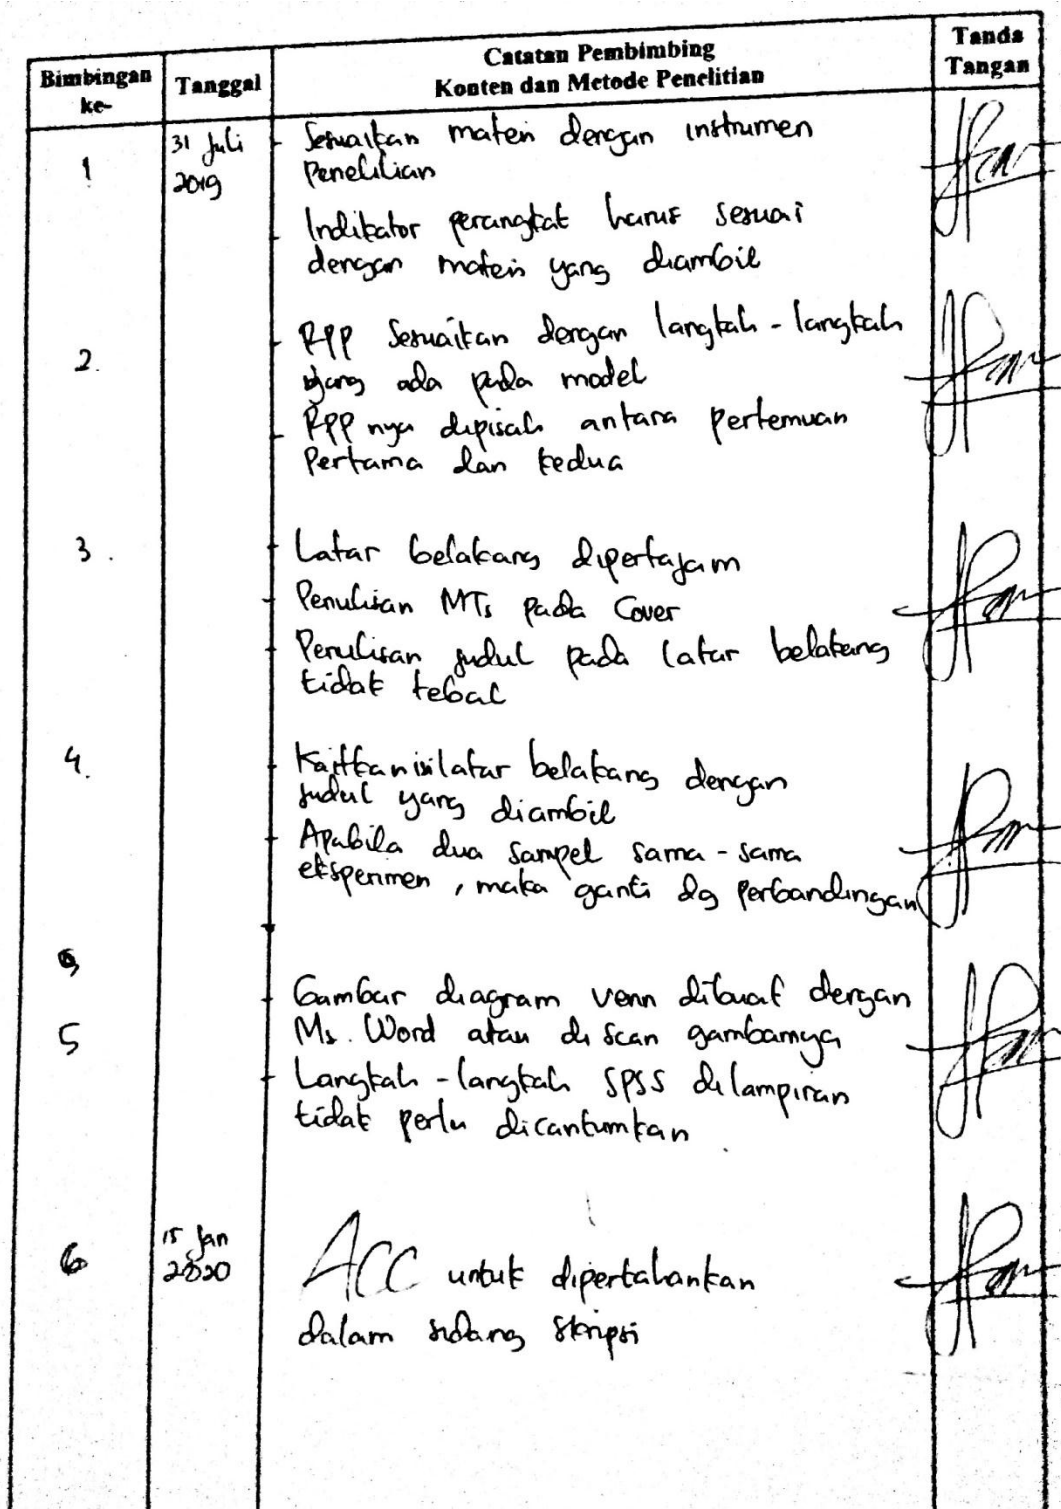 Bimbingan ke-
Tanggal
Catatan Pembimbing
Konten dan Metode Penelitian
Tanda
Tangan
1
31 Juli
2019
- Sesuaikan materi dengan instrumen
Penelitian
- Indikator perangkat harus sesuai
dengan materi yang diambil
2.
- RPP Sesuaikan dengan langkah - langkah
yang ada pada model
- RPP nya dipisah antara pertemuan
Pertama dan kedua
3.
- Latar belakang dipertajam
- Penulisan MTs pada Cover
- Penulisan judul pada latar belakang
tidak tebal
4.
- Kaitkan isi latar belakang dengan
judul yang diambil
- Apabila dua sampel sama - sama
eksperimen, maka ganti dg perbandingan
5
- Gambar diagram venn dibuat dengan
Ms. Word atau di scan gambarnya
- Langkah - langkah SPSS dilampiran
tidak perlu dicantumkan
6
15 Jan
2020
ACC untuk dipertahankan
dalam sidang skripsi